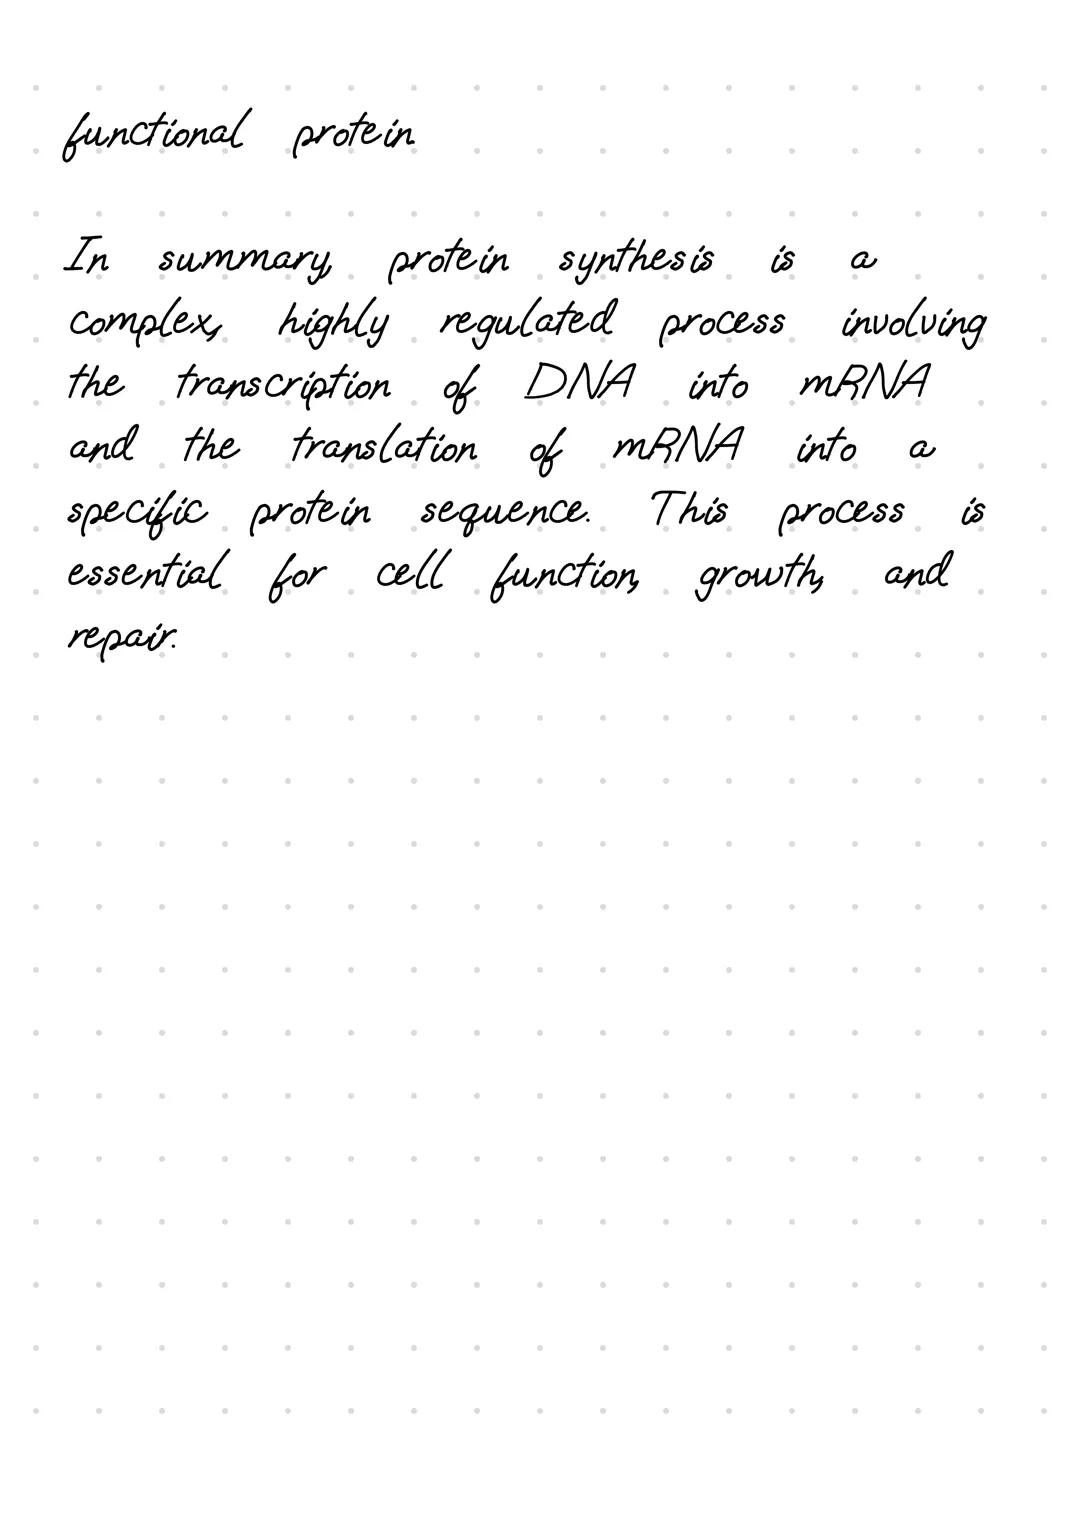 functional protein
In summary, protein synthesis is a
complex, highly regulated process involving
the transcription of DNA into mRNA
and the translation of mRNA into a
specific protein sequence. This process is
essential for cell function, growth, and
repair.